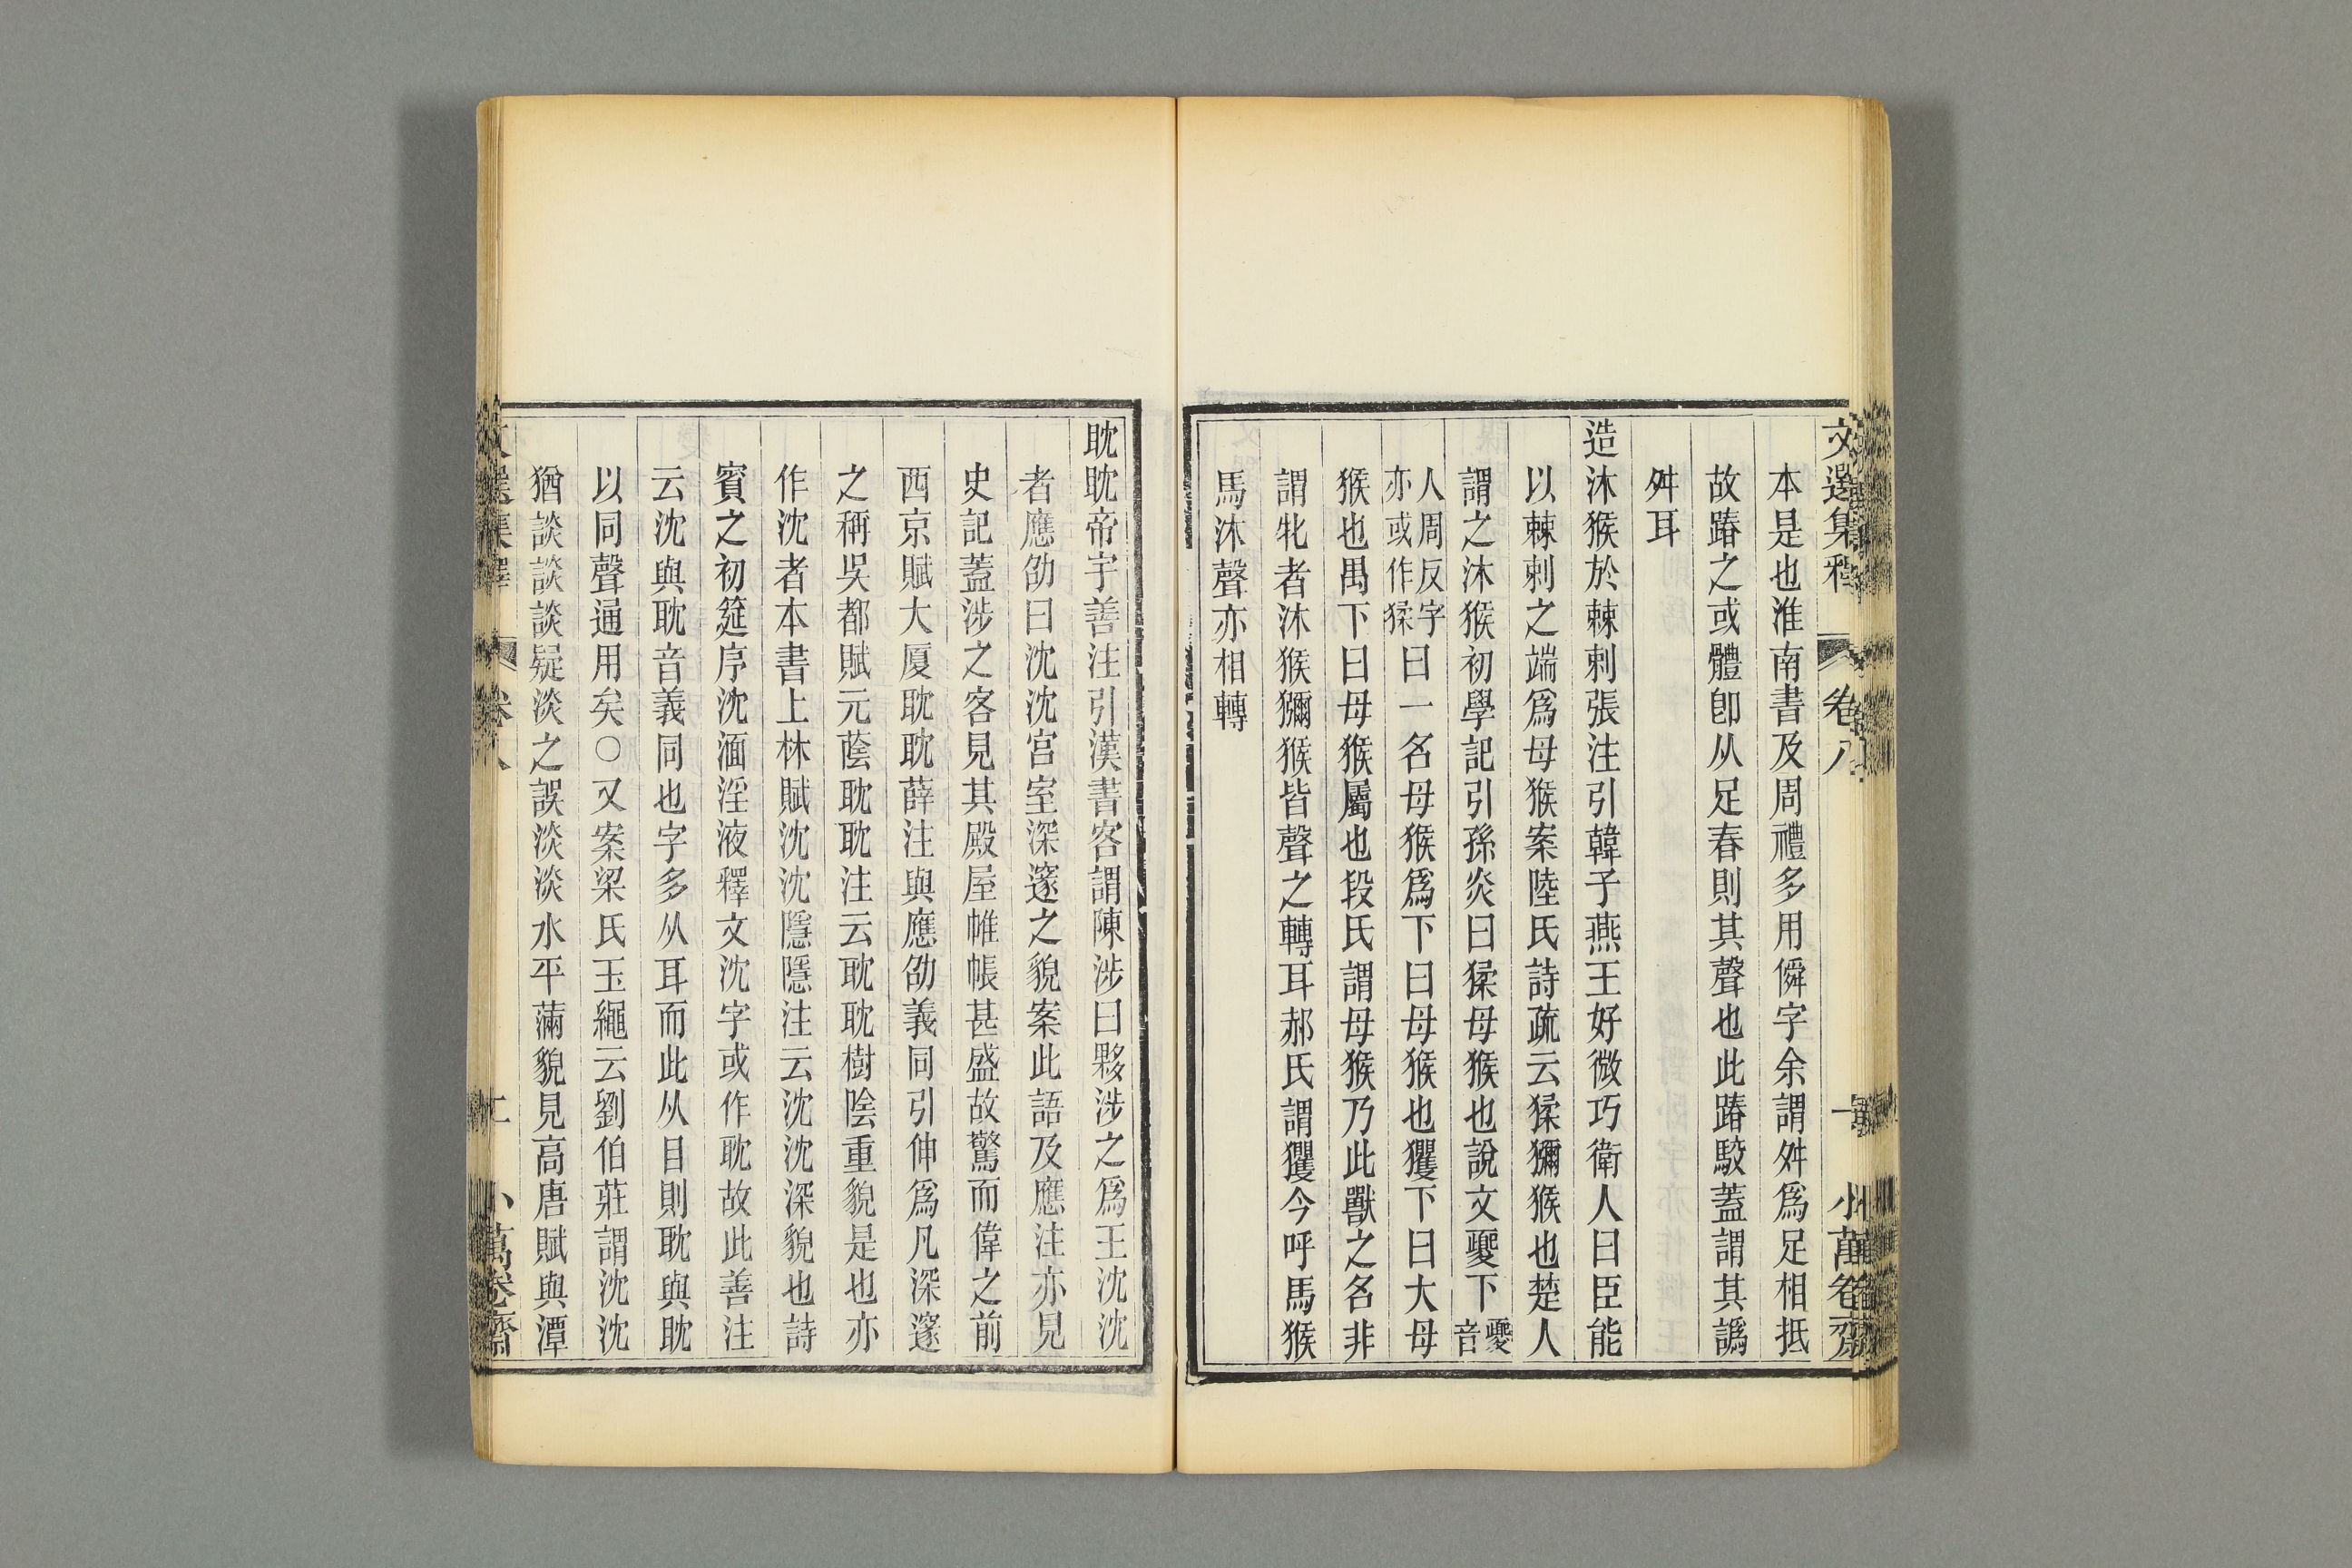 文選集釋 卷八 小萬卷齋
本是也淮南書及周禮多用僢字余謂舛爲足相抵
故踳之或體卽从足春則其聲也此踳駮蓋謂其譌
舛耳
造沐猴於棘刺張注引韓子燕王好微巧衛人曰臣能
以棘刺之端爲母猴案陸氏詩疏云猱獼猴也楚人
謂之沐猴初學記引孫炎曰猱母猴也說文夒下夒音
人周反字亦或作猱曰一名母猴爲下曰母猴也玃下曰大母
猴也禺下曰母猴屬也段氏謂母猴乃此獸之名非
謂牝者沐猴獼猴皆聲之轉耳郝氏謂玃今呼馬猴
馬沐聲亦相轉
耽耽帝宇善注引漢書客謂陳涉曰夥涉之爲王沈沈
者應劭曰沈沈宮室深邃之貌案此語及應注亦見
史記蓋涉之客見其殿屋帷帳甚盛故驚而偉之前
西京賦大厦耽耽薛注與應劭義同引伸爲凡深邃
之稱吳都賦元蔭耽耽注云耽耽樹陰重貌是也亦
作沈者本書上林賦沈沈隱隱注云沈沈深貌也詩
賓之初筵序沈湎淫液釋文沈字或作耽故此善注
云沈與耽音義同也字多从耳而此从目則耽與眈
以同聲通用矣○又案梁氏玉繩云劉伯莊謂沈沈
猶談談談疑淡之誤淡淡水平滿貌見高唐賦與潭
文選集釋 卷八 小萬卷齋